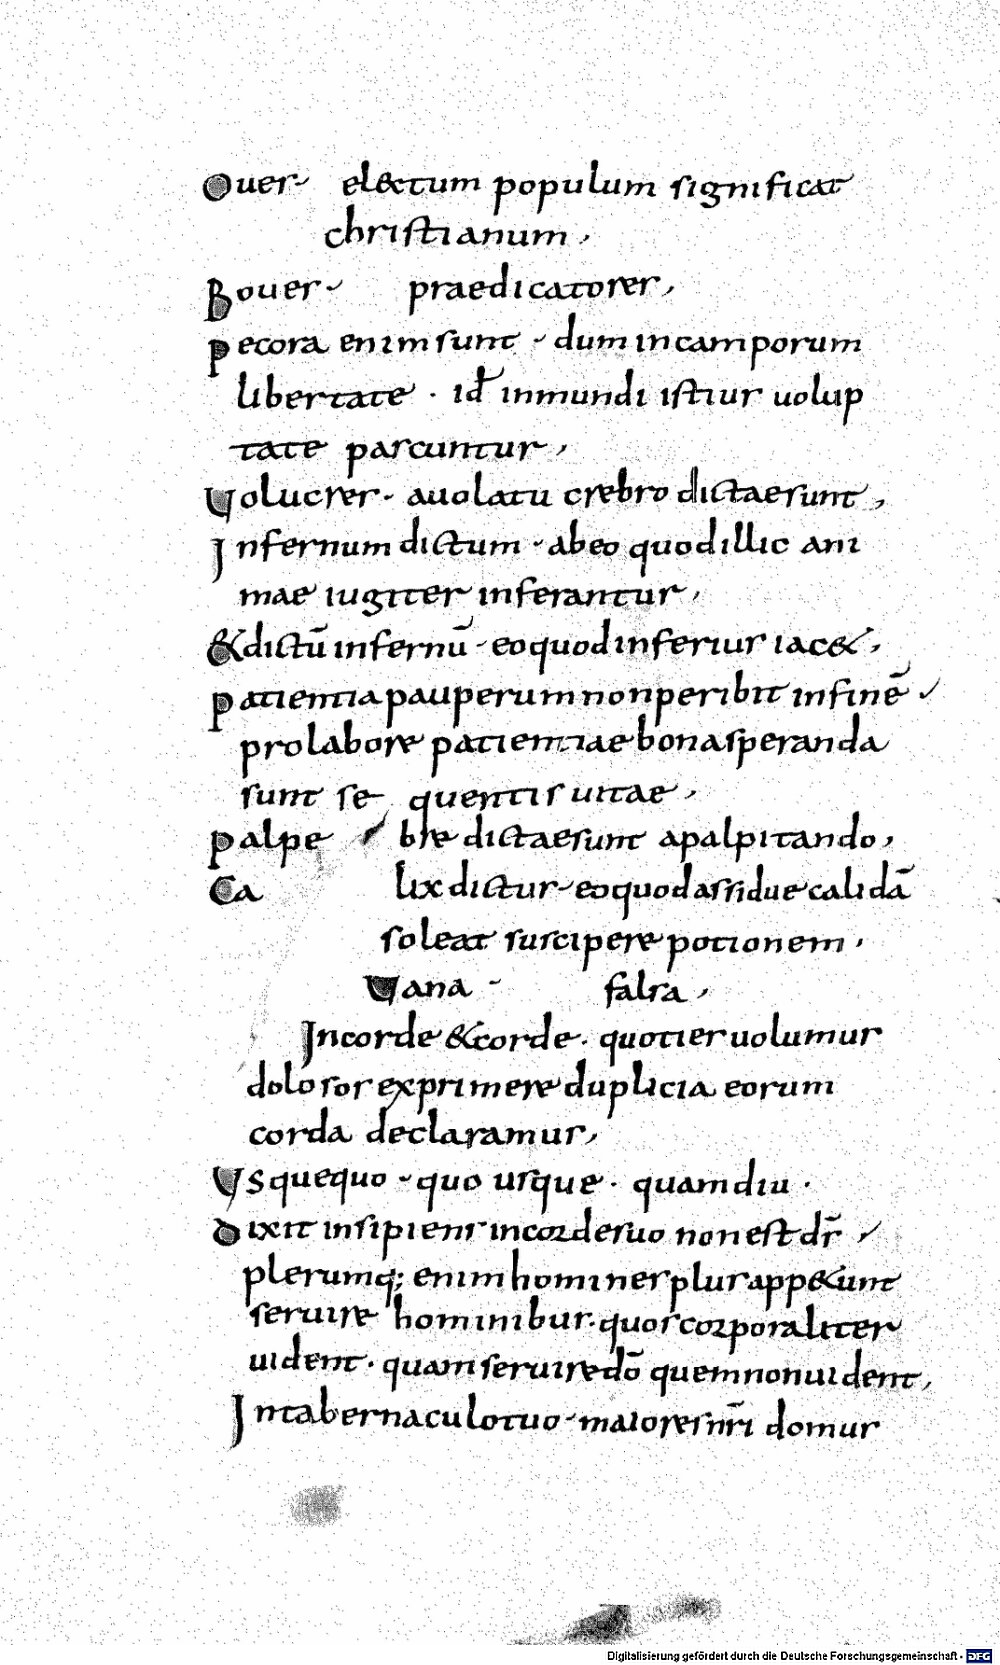 Oues electum populum significat
christianum,
Boues praedicatores,
Pecora enim sunt dum in camporum
libertate · id ÷ in mundi istius uolup
tate pascuntur,
Volucres auolatu crebro dictae sunt,
Infernum dictum abeo quod illic ani
mae iugiter inferantur,
& dictū infernū eo quod inferius iac&,
Patientia pauperum non peribit in finē
pro labore patientiae bona speranda
sunt se quentis uitae,
Palpe bre dictae sunt apalpitando,
Ca lix dictus eo quod assidue calidā
soleat suscipere potionem,
Vana falsa,
In corde & corde. quoties uolumus
dolosos exprimere duplicia eorum
corda declaramus,
Vsquequo quo usque · quamdiu ·
Dixit insipiens in corde suo non est ds̄
plerumq; enim homines plus app&unt
seruire hominibus. quos corporaliter
uident · quam seruire dō quem non uident,
In tabernaculo tuo maiores nr̄i domus
Digitalisierung gefördert durch die Deutsche Forschungsgemeinschaft - DFG